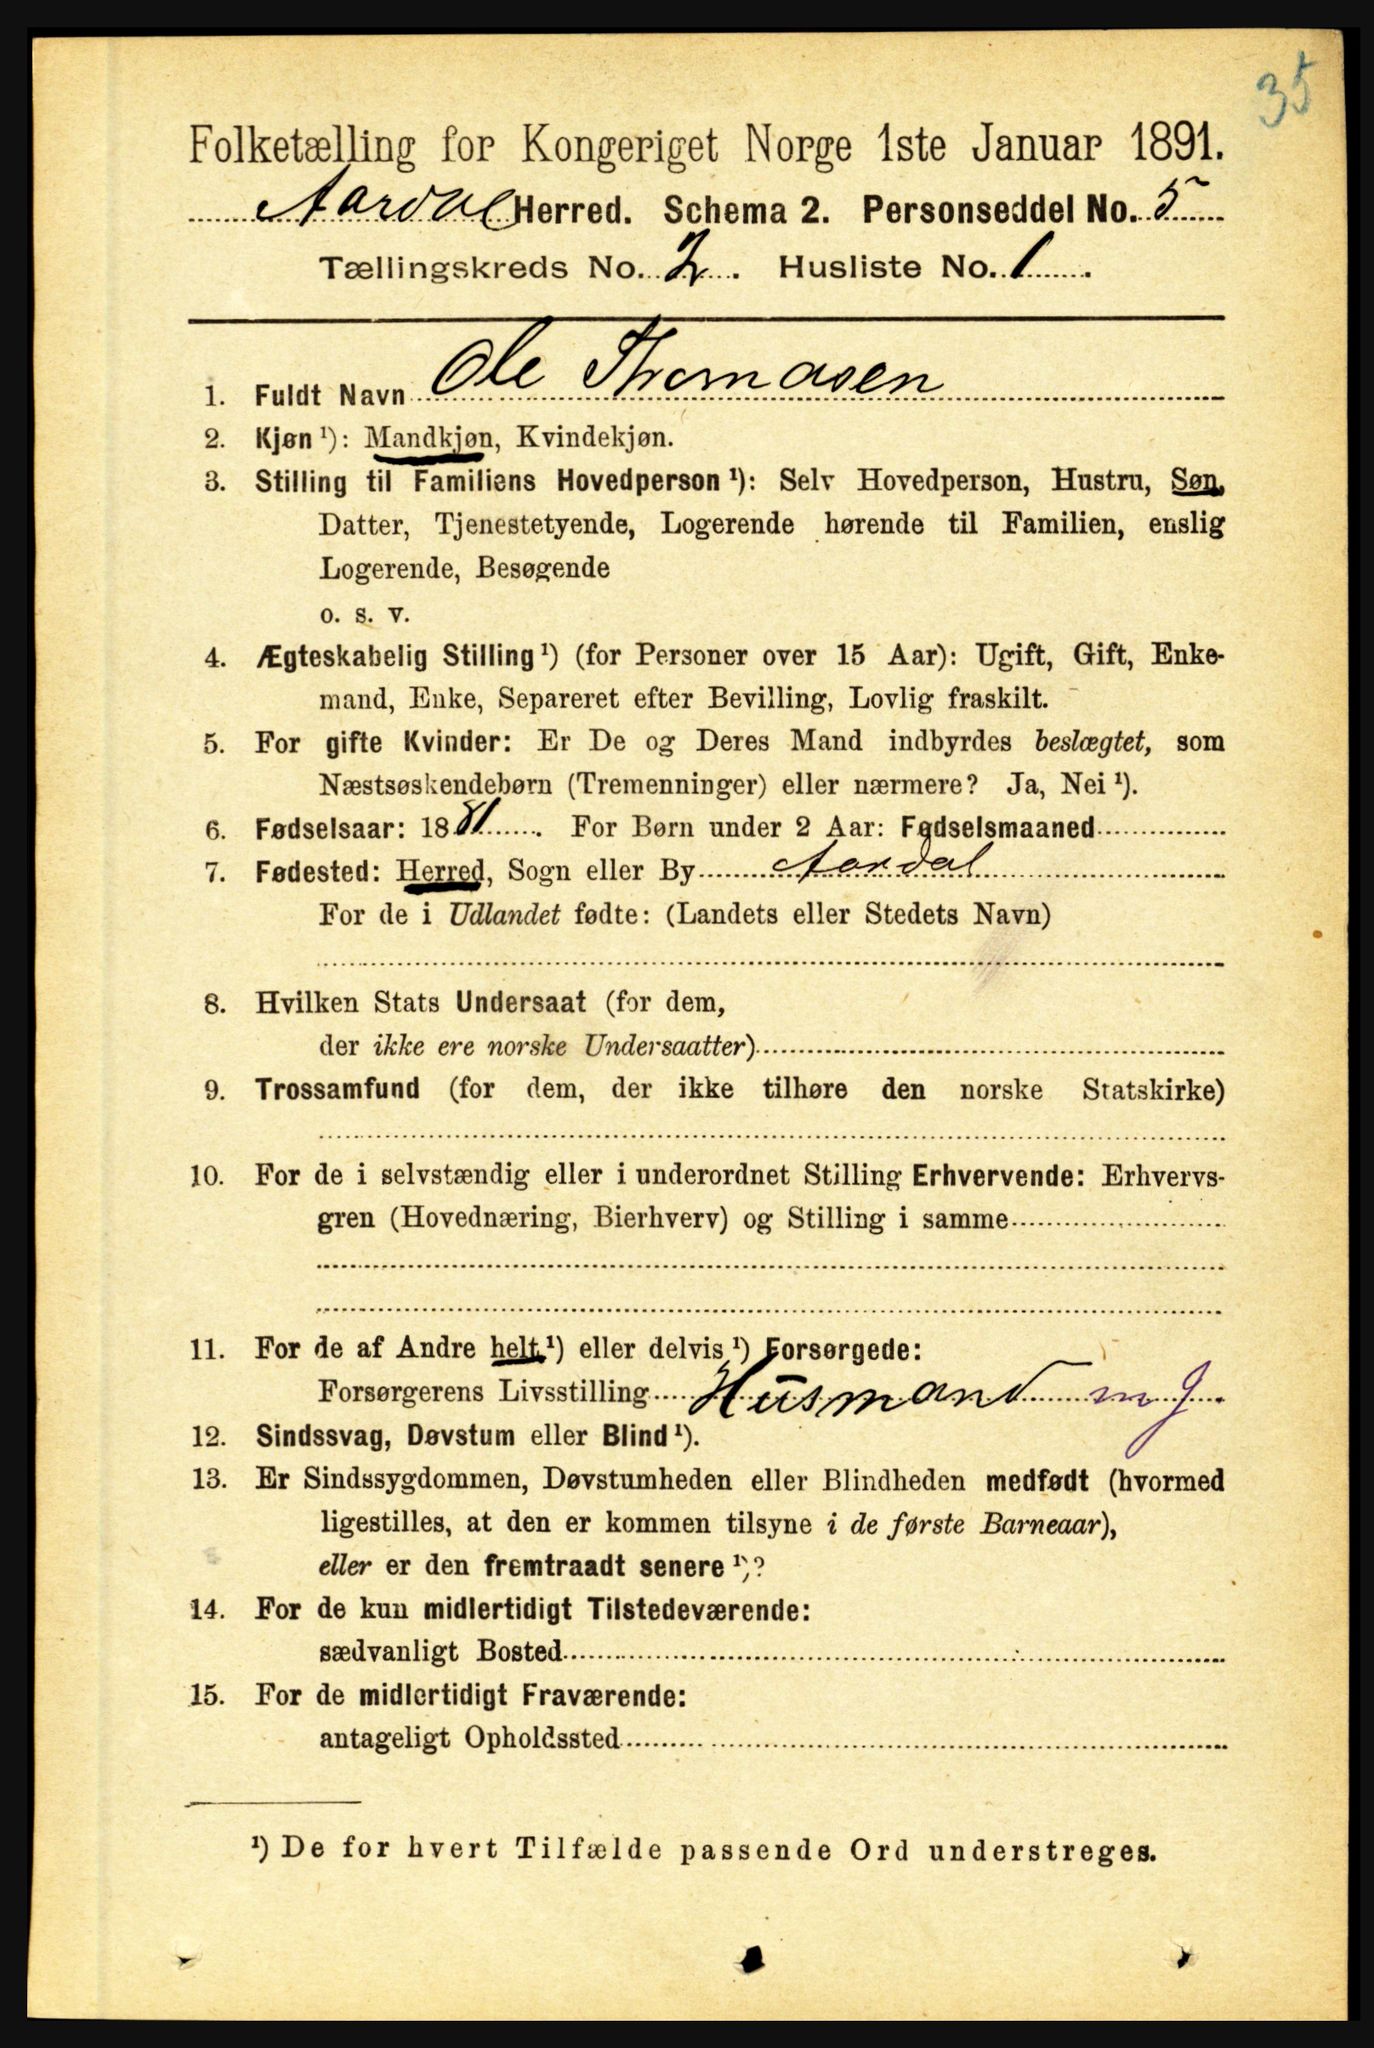 35
Folketælling for Kongeriget Norge 1ste Januar 1891.
Aardal Herred. Schema 2. Personseddel No. 5
Tællingskreds No. 2. Husliste No. 1.
1. Fuldt Navn Ole Thomasen
2. Kjøn ¹): Mandkjøn, Kvindekjøn.
3. Stilling til Familiens Hovedperson ¹): Selv Hovedperson, Hustru, Søn,
Datter, Tjenestetyende, Logerende hørende til Familien, enslig
Logerende, Besøgende
o. s. v.
4. Ægteskabelig Stilling ¹) (for Personer over 15 Aar): Ugift, Gift, Enke-
mand, Enke, Separeret efter Bevilling, Lovlig fraskilt.
5. For gifte Kvinder: Er De og Deres Mand indbyrdes beslægtet, som
Næstsøskendebørn (Tremenninger) eller nærmere? Ja, Nei ¹).
6. Fødselsaar: 1881. For Børn under 2 Aar: Fødselsmaaned
7. Fødested: Herred, Sogn eller By Aardal
For de i Udlandet fødte: (Landets eller Stedets Navn)
8. Hvilken Stats Undersaat (for dem,
der ikke ere norske Undersaatter)
9. Trossamfund (for dem, der ikke tilhøre den norske Statskirke)
10. For de i selvstændig eller i underordnet Stilling Erhvervende: Erhvervs-
gren (Hovednæring, Bierhverv) og Stilling i samme
11. For de af Andre helt ¹) eller delvis ¹) Forsørgede:
Forsørgerens Livsstilling Husmand m J.
12. Sindssvag, Døvstum eller Blind ¹).
13. Er Sindssygdommen, Døvstumheden eller Blindheden medfødt (hvormed
ligestilles, at den er kommen tilsyne i de første Barneaar),
eller er den fremtraadt senere ¹)?
14. For de kun midlertidigt Tilstedeværende:
sædvanligt Bosted
15. For de midlertidigt Fraværende:
antageligt Opholdssted
¹) De for hvert Tilfælde passende Ord understreges.